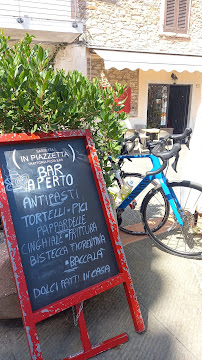 IN PIAZZETTA
BAR
APERTO
ANTIPASTI
TORTELLI - PICI
PAPPARDELLE
CINGHIALE - FRITTURA
BISTECCA FIORENTINA
BACCALÀ
DOLCI FATTI IN CASA